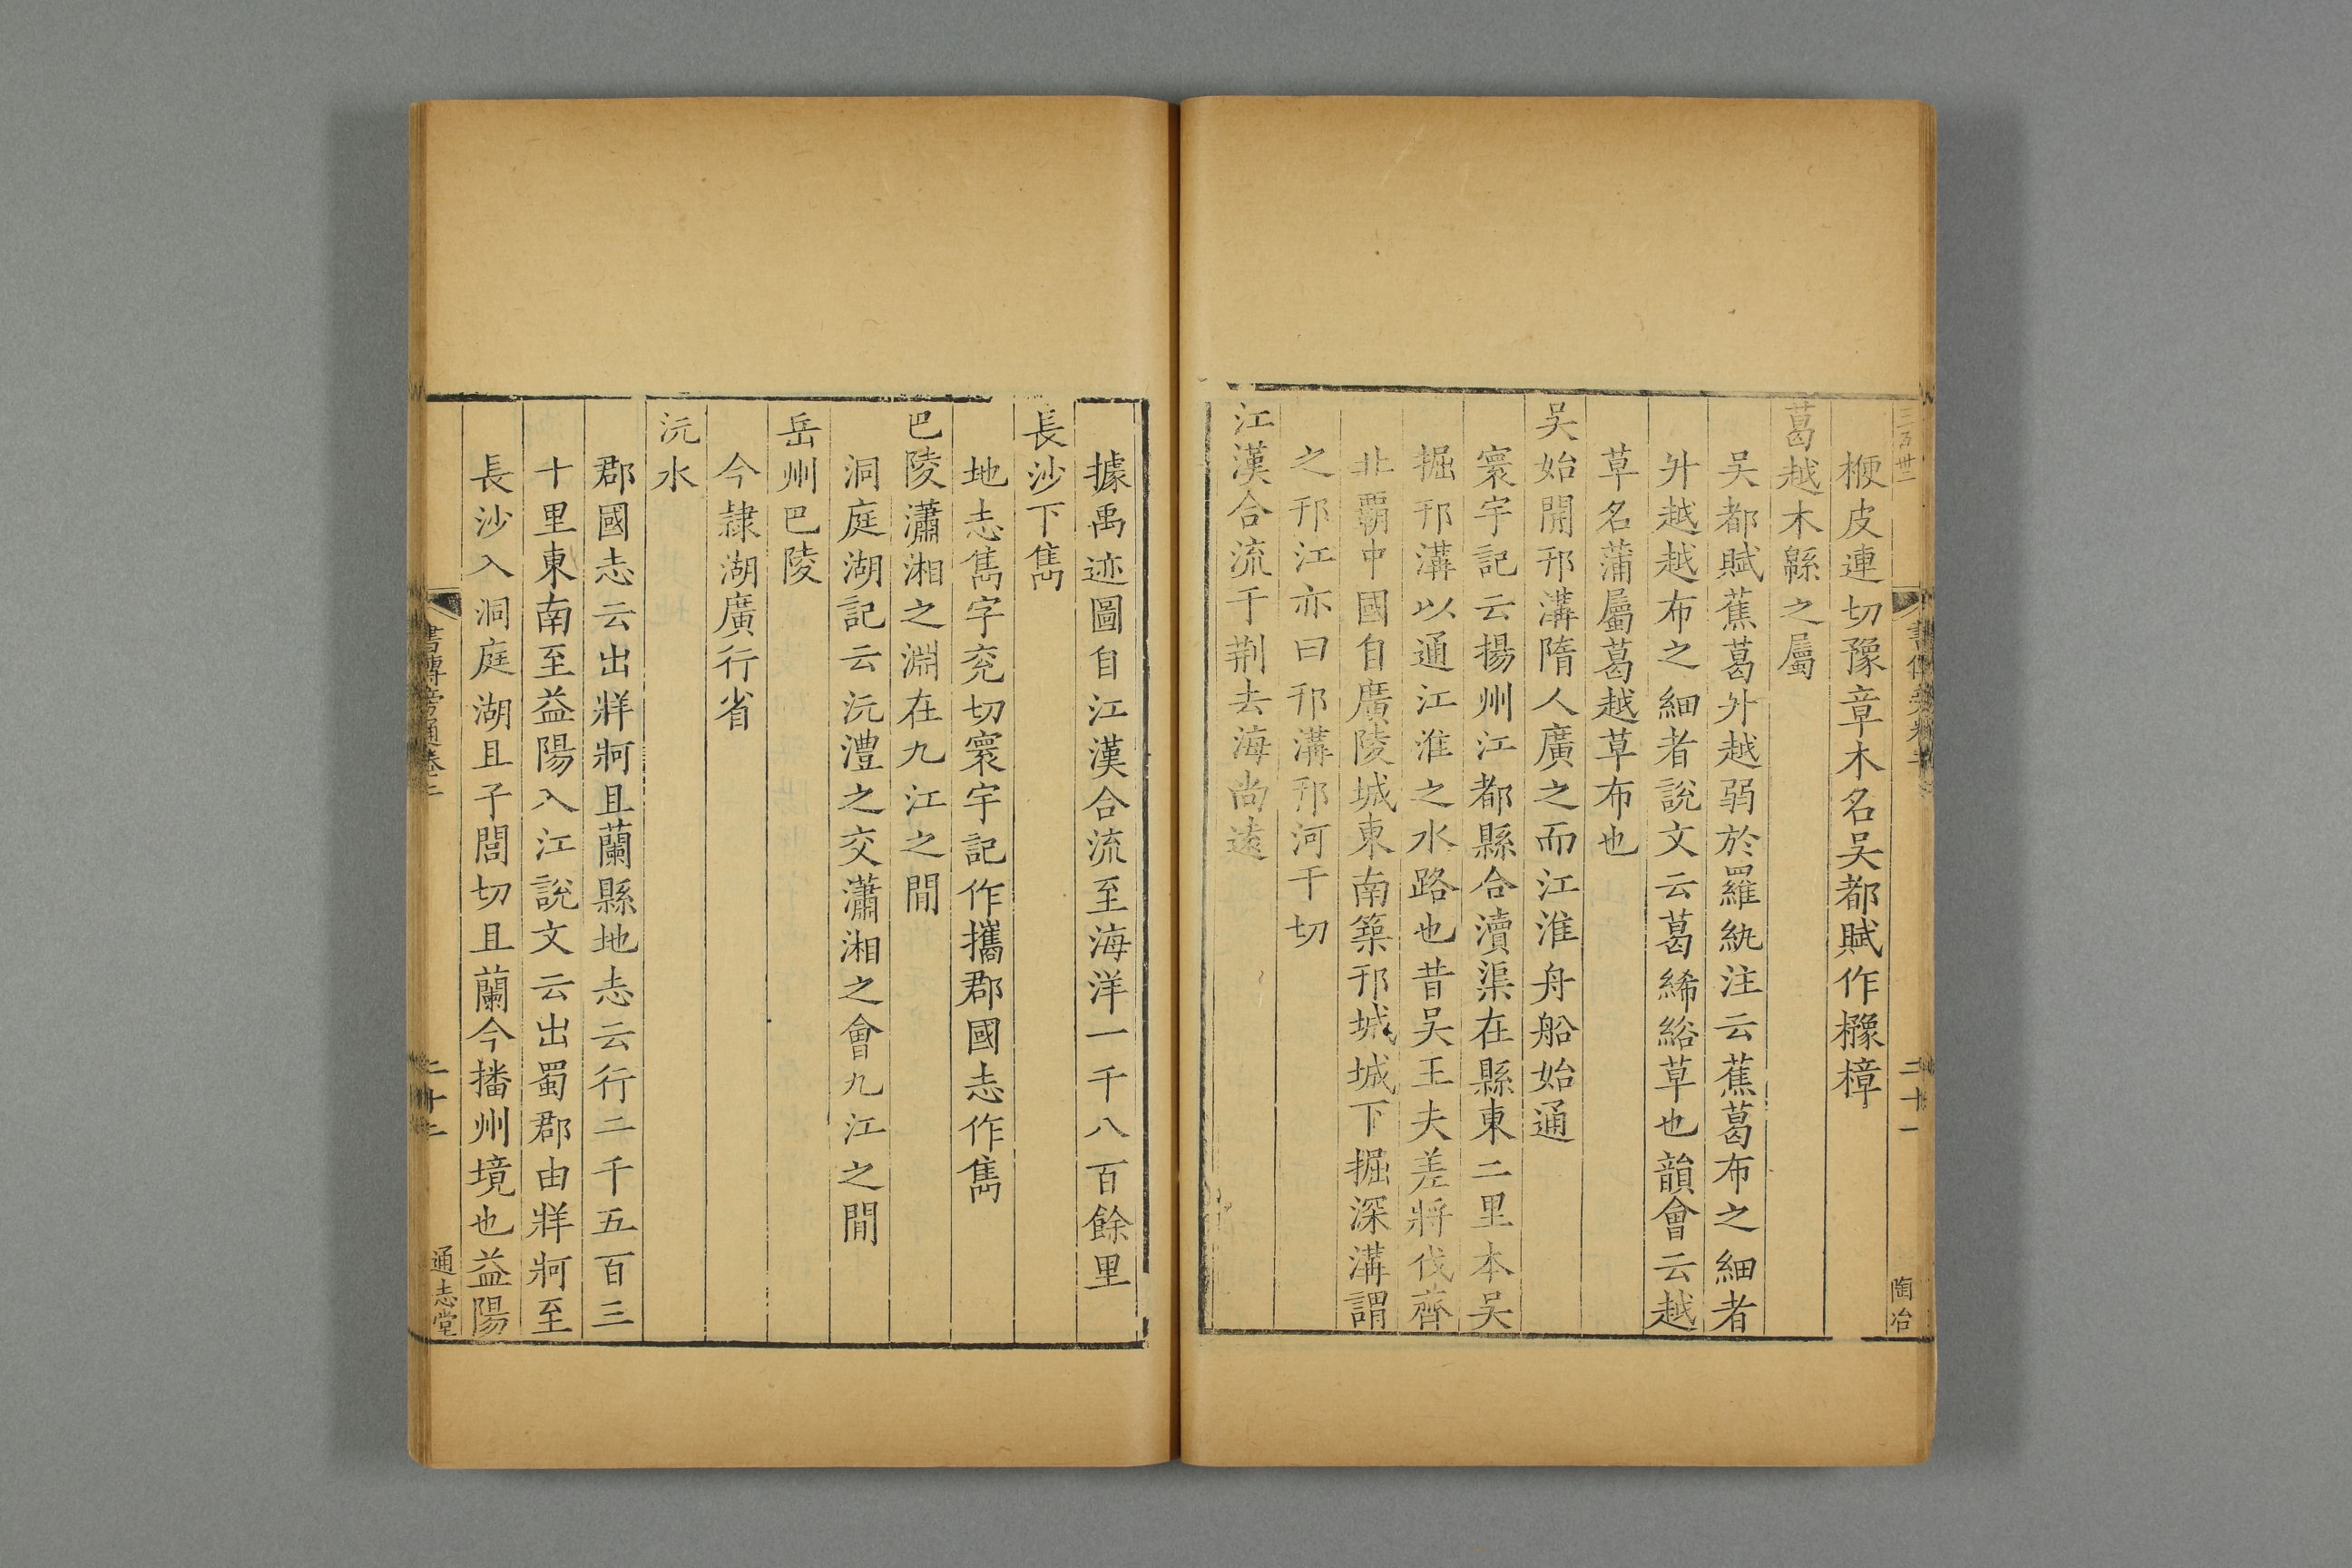 三百卅二
楩皮連切豫章木名吴都賦作櫲樟
葛越木緜之屬
吴都賦蕉葛升越弱於羅紈注云蕉葛布之細者
升越越布之細者說文云葛絺綌草也韻會云越
草名蒲屬葛越草布也
吴始開邗溝隋人廣之而江淮舟船始通
寰宇記云揚州江都縣合瀆渠在縣東二里本吴
掘邗溝以通江淮之水路也昔吴王夫差將伐齊
北霸中國自廣陵城東南築邗城城下掘深溝謂
之邗江亦曰邗溝邗河干切
江漢合流于荆去海尚遠
二十一
陶冶
據禹迹圖自江漢合流至海洋一千八百餘里
長沙下雋
地志雋字兖切寰宇記作攜郡國志作雋
巴陵瀟湘之淵在九江之閒
洞庭湖記云沅澧之交瀟湘之會九江之閒
岳州巴陵
今隷湖廣行省
沅水
郡國志云出牂牁且蘭縣地志云行二千五百三
十里東南至益陽入江說文云出蜀郡由牂牁至
長沙入洞庭湖且子閭切且蘭今播州境也益陽
書傳旁通卷二
二十二
通志堂